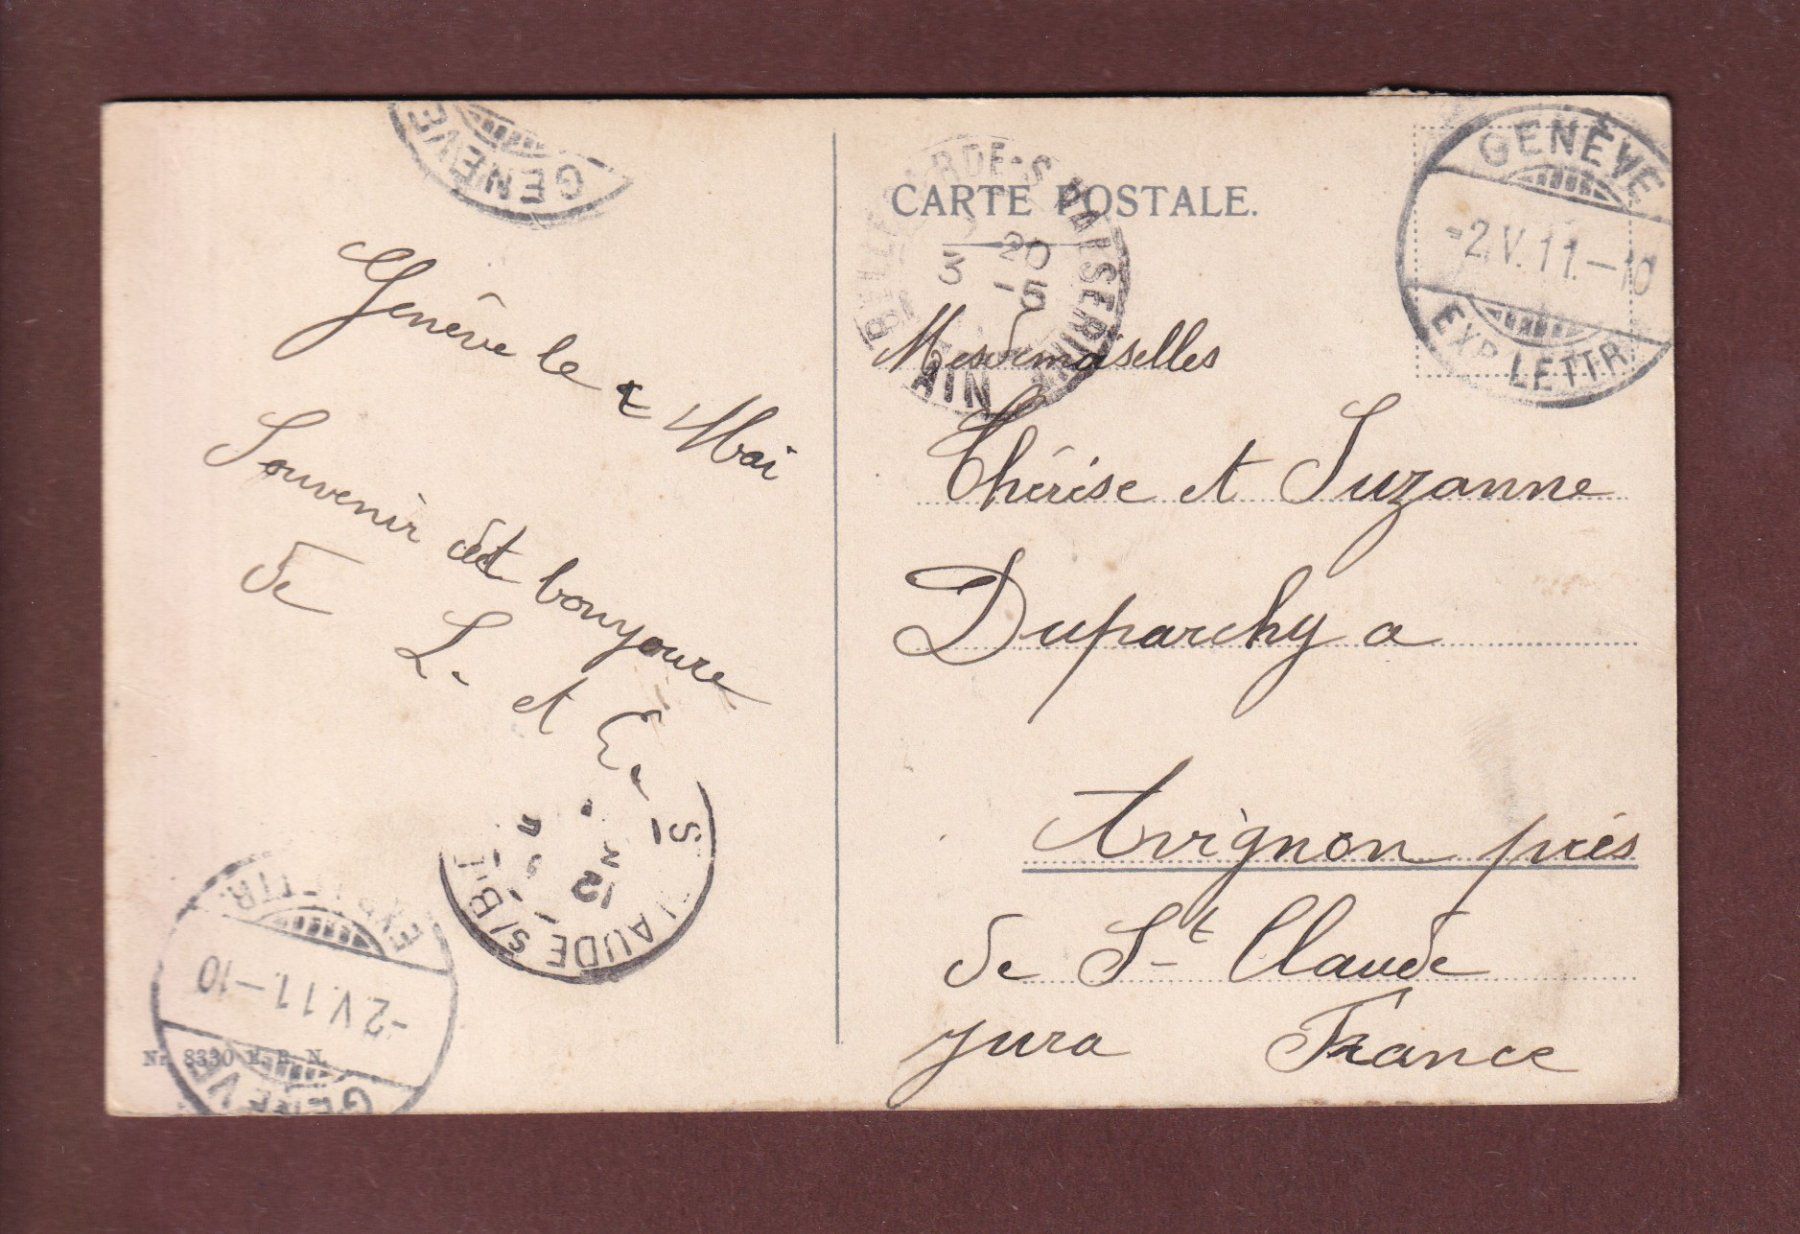 GENEVE
Genève le 2 Mai
Souvenir et bonjoure
de
L. et E.
S CLAUDE S/B
12
EXP. LETTR.
-2.V.11.-10
GENEVE
Nr. 8330
CARTE POSTALE.
BELLEGARDE-S-VALSERINE
20
3 -5
AIN
GENÈVE
-2.V.11.-10
EXP. LETTR.
Mesdemoiselles
Thérèse et Suzanne
Duparchy a
Avignon près
de St Claude
jura France